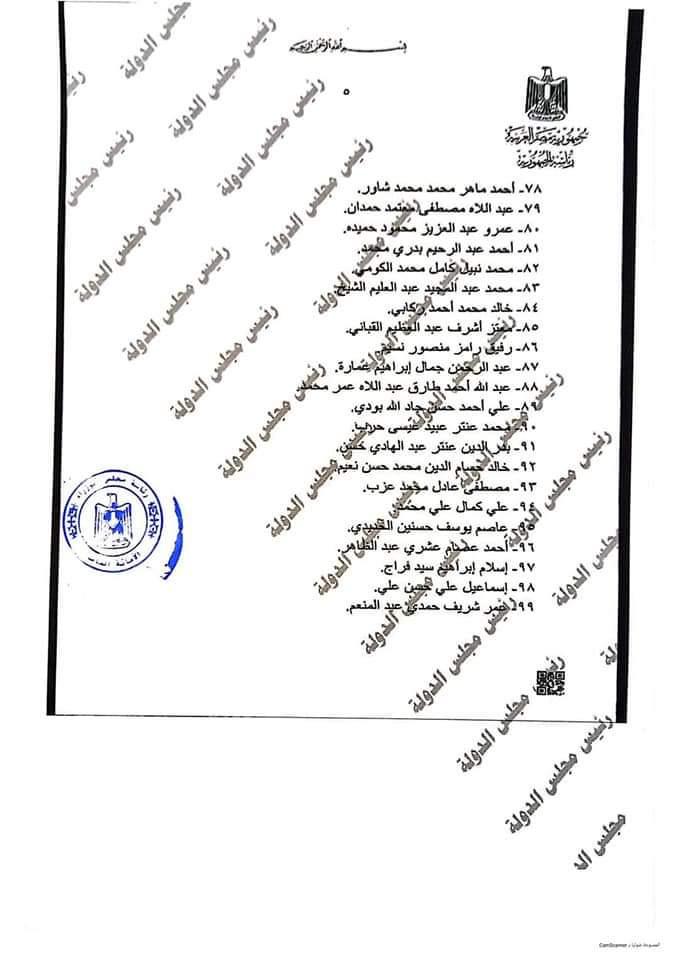 بسم الله الرحمن الرحيم
٥
جمهورية مصر العربية
رئاسة الجمهورية
٧٨- أحمد ماهر محمد محمد شاور.
٧٩- عبد اللاه مصطفى معتمد حمدان.
٨٠- عمرو عبد العزيز محمود حميده.
٨١- أحمد عبد الرحيم بدري محمد.
٨٢- محمد نبيل كامل محمد الكومي.
٨٣- محمد عبد المجيد عبد العليم الشيخ.
٨٤- خالد محمد أحمد زكابي.
٨٥- معتز أشرف عبد العظيم القباني.
٨٦- رفيق رامز منصور نسيم.
٨٧- عبد الرحمن جمال إبراهيم عمارة.
٨٨- عبد الله أحمد طارق عبد اللاه عمر محمد.
٨٩- علي أحمد حسن جاد الله بودي.
٩٠- محمد عنتر عبيد عيسى حرب.
٩١- بدر الدين عنتر عبد الهادي حسن.
٩٢- خالد حسام الدين محمد حسن نعيم.
٩٣- مصطفى عادل محمد عزب.
٩٤- علي كمال علي محمد.
٩٥- عاصم يوسف حسنين
٩٦- أحمد عصام عشري عبد الظاهر.
٩٧- إسلام إبراهيم سيد فراج.
٩٨- إسماعيل علي حسن علي.
٩٩- عمر شريف حمدي عبد المنعم.
رئاسة مجلس الوزراء
الأمانة العامة
رئيس مجلس الدولة
الممسوحة ضوئيا بـ CamScanner